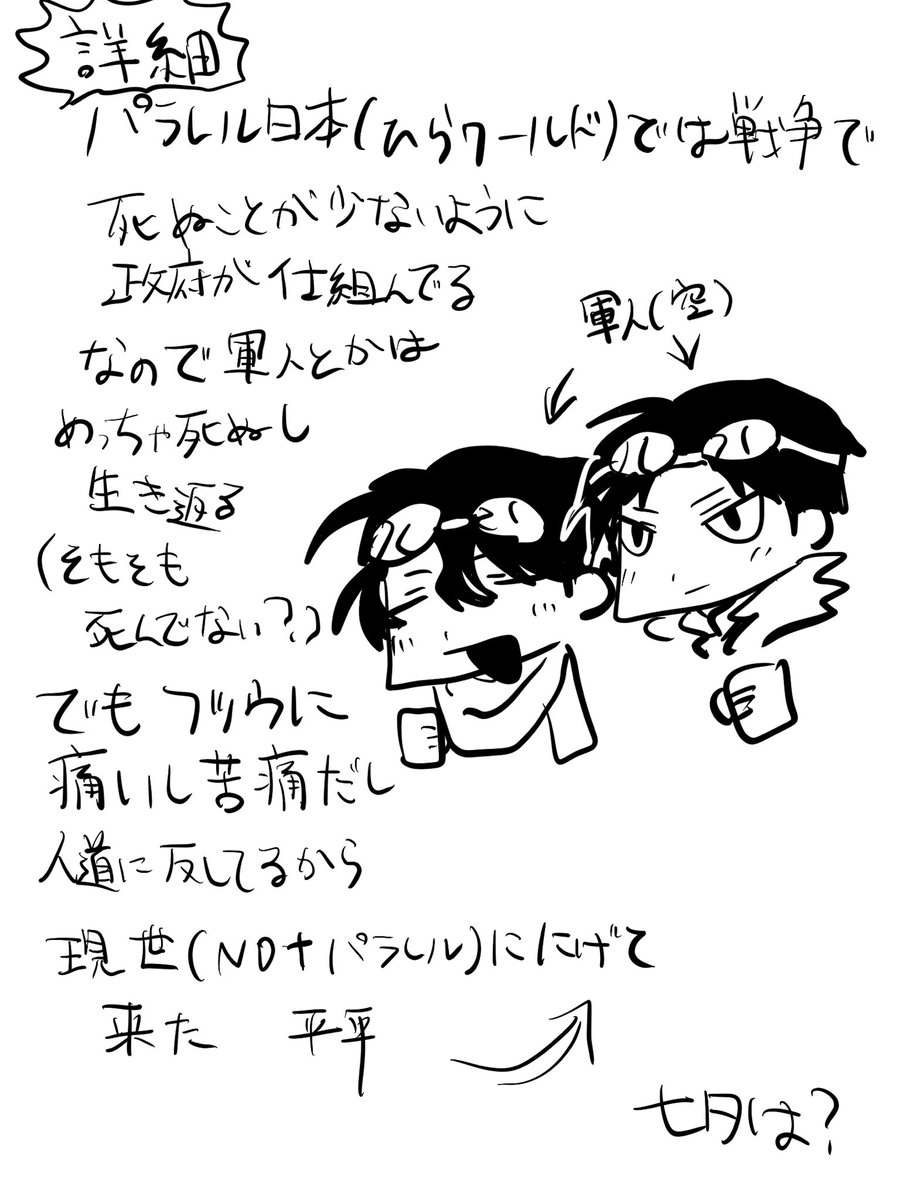 詳細
パラレル日本(ひらワールド)では戦争で
死ぬことが少ないように
政府が仕組んでる
なので軍人とかは
めっちゃ死ぬし
生き返る
(そもそも
死んでない?)
でもフツウに
痛いし苦痛だし
人道に反してるから
現世(NOtパラレル)ににげて
来た 平平
軍人(空)
七月は?